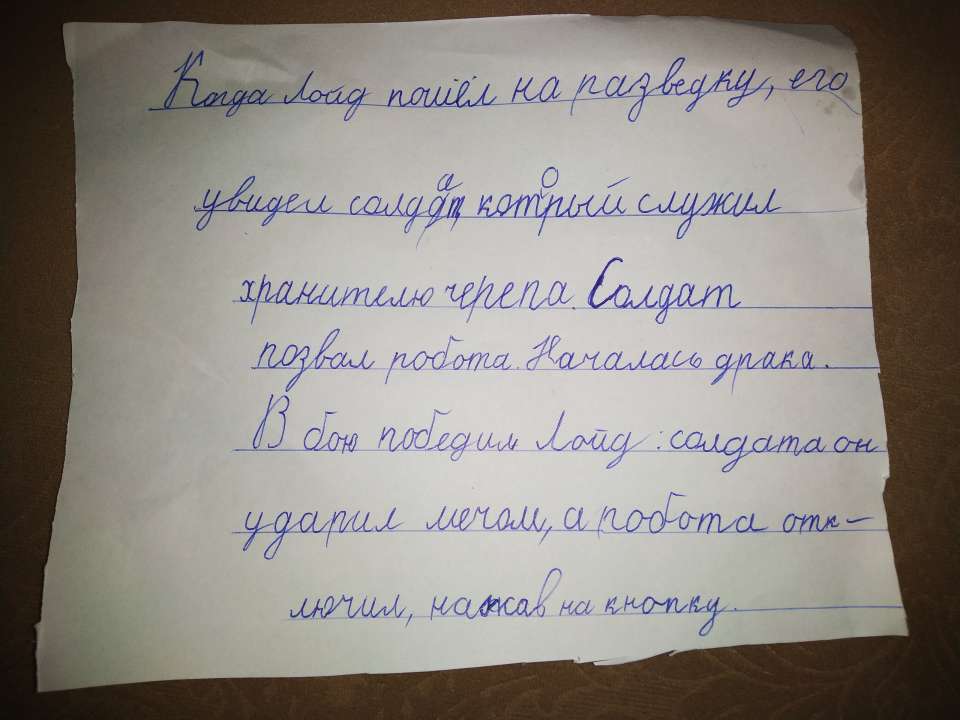 Когда Лойд пошёл на разведку, его
увидел солдат, который служил
хранителю черепа. Солдат
позвал робота. Началась драка.
В бою победил Лойд: солдата он
ударил мечом, а робота отк-
лючил, нажав на кнопку.